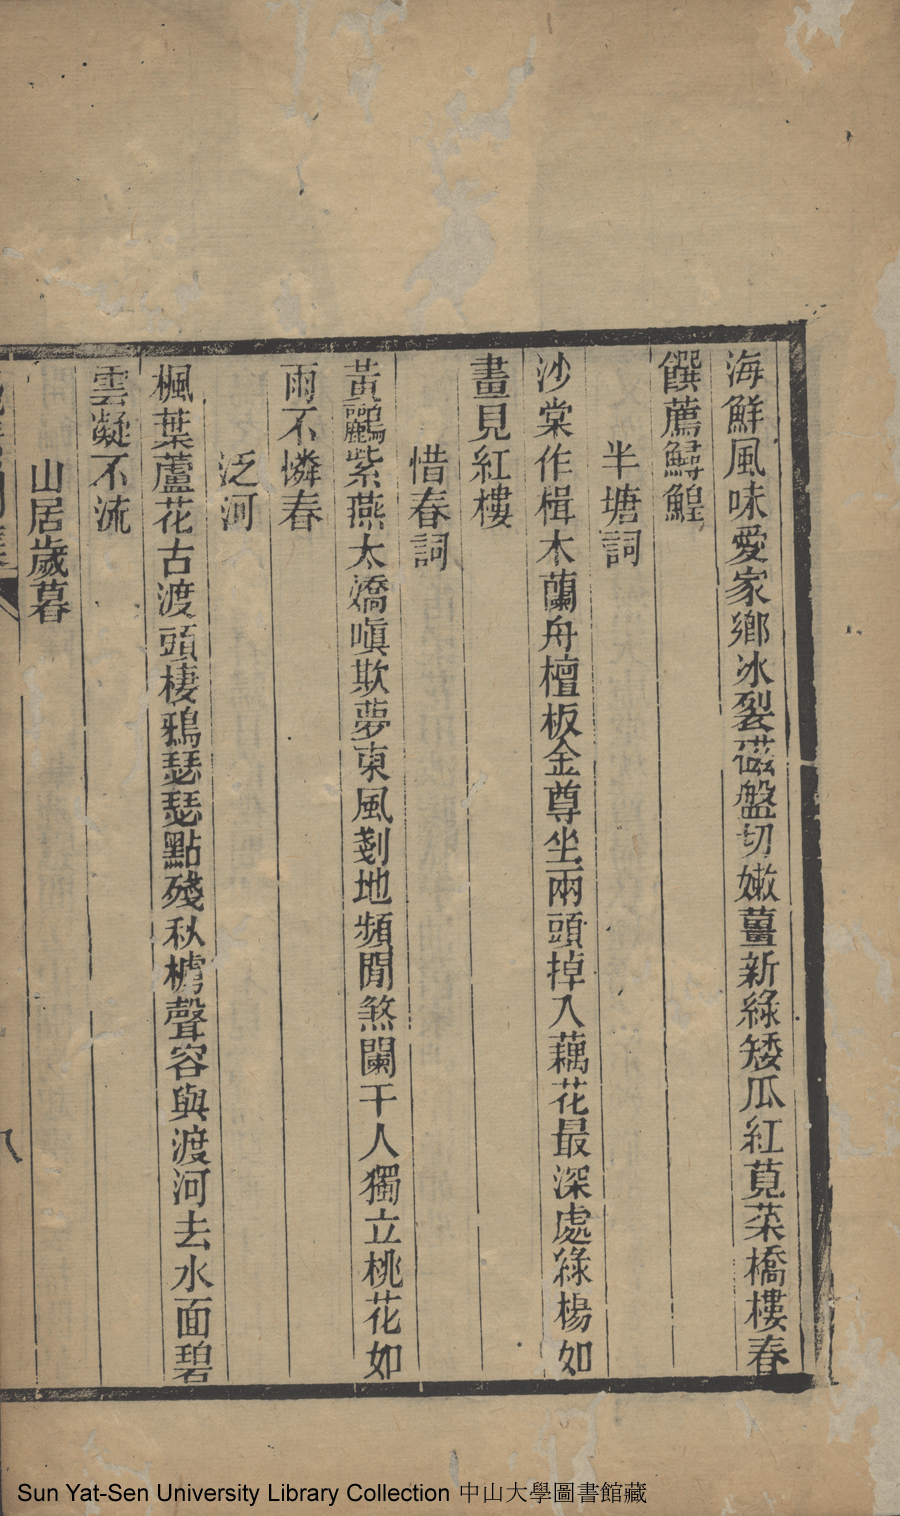 海鮮風味愛家鄉冰裂磁盤切嫩薑新綠矮瓜紅莧菜橋樓春
饌薦鱘鰉
半塘詞
沙棠作楫木蘭舟檀板金尊坐兩頭掉入藕花最深處綠楊如
畫見紅樓
惜春詞
黃鸝紫燕太嬌嗔欺夢東風剗地頻閒煞闌干人獨立桃花如
雨不憐春
泛河
楓葉蘆花古渡頭棲鴉瑟瑟點殘秋艣聲容與渡河去水面碧
雲凝不流
山居歲暮
八
Sun Yat-Sen University Library Collection 中山大學圖書館藏